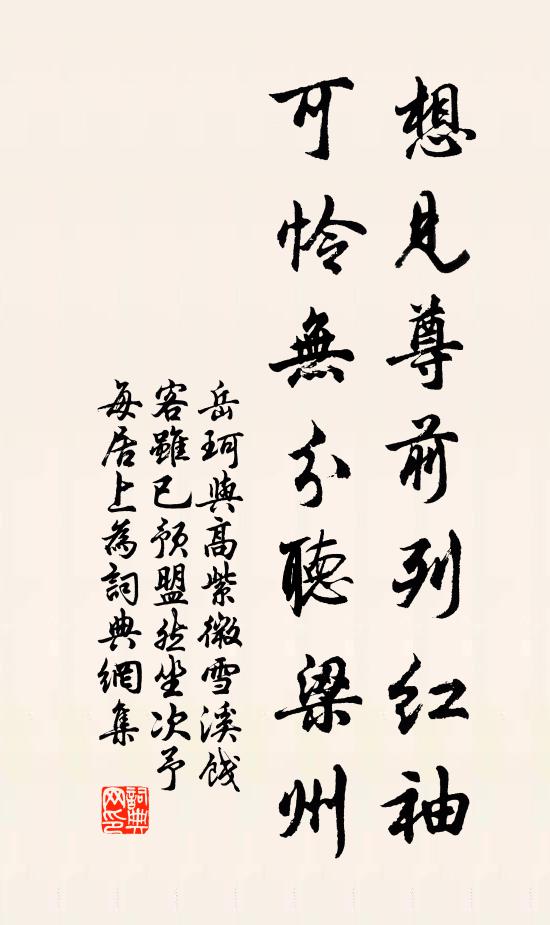 想見尊前列紅袖
可憐無分聽梁州
岳珂與高紫微雪溪餞
客雖已預盟然坐次予
每居上為詞典網集
詞典網印